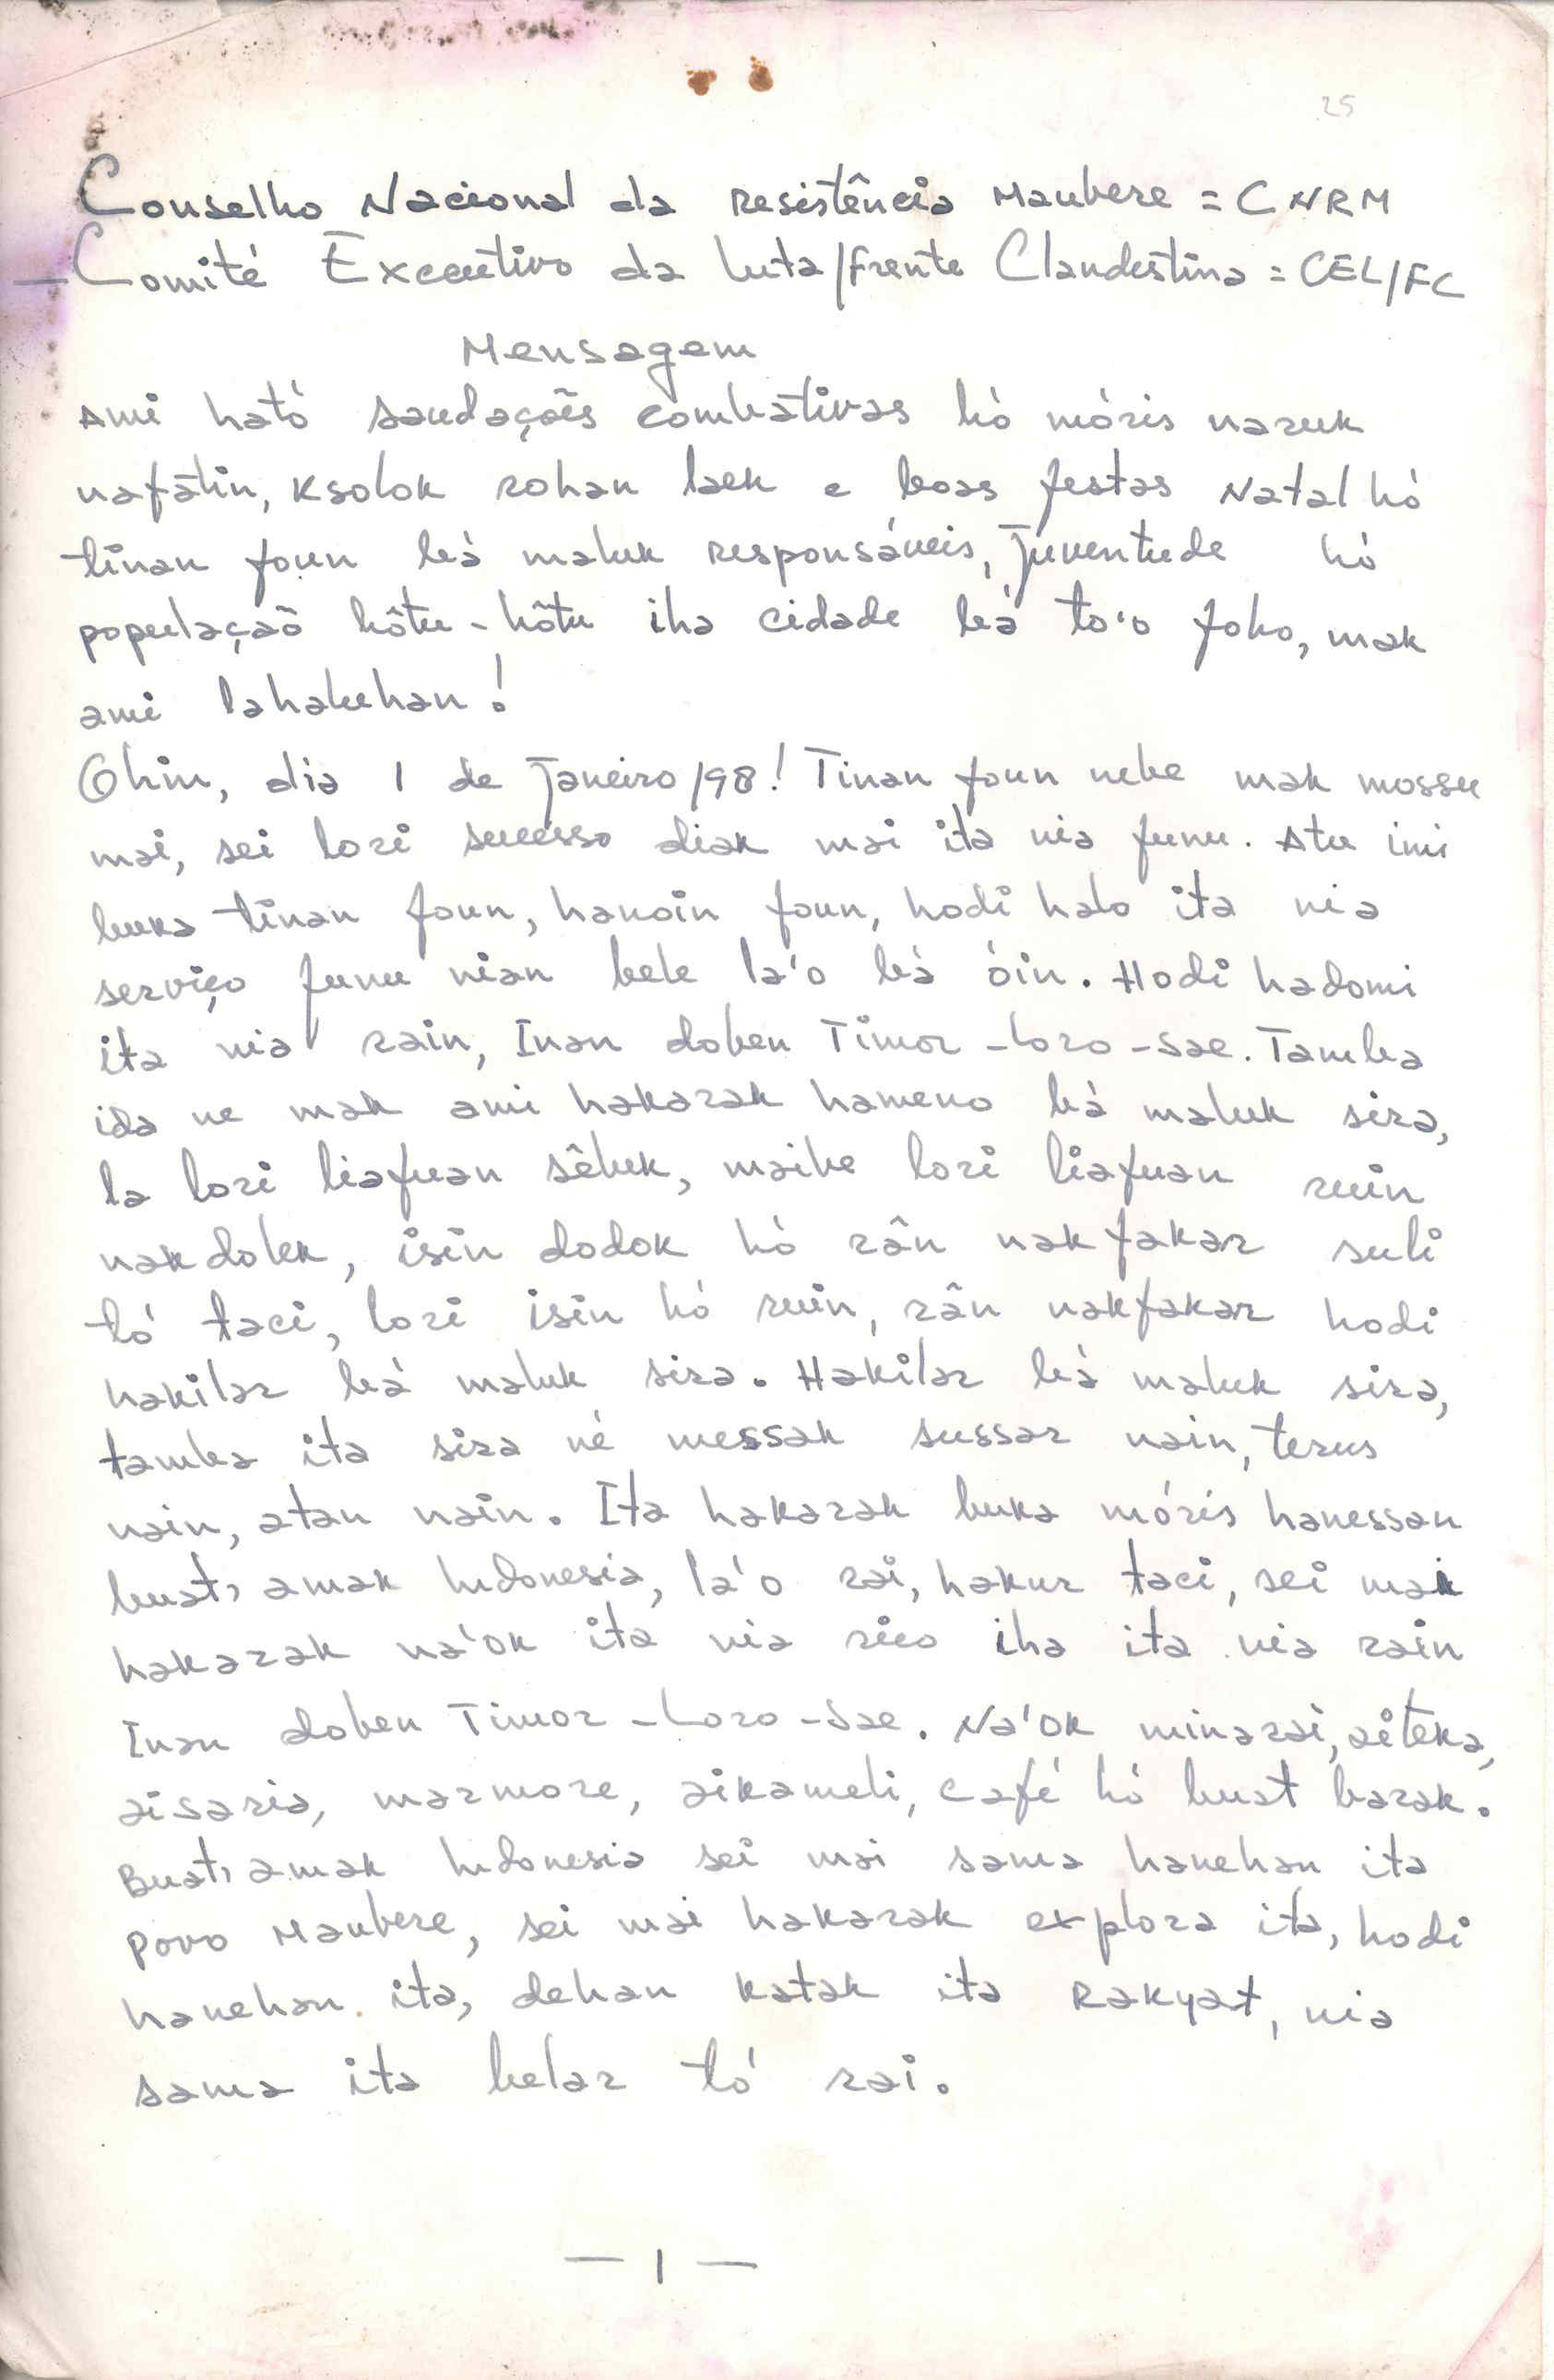 25
Conselho Nacional da Resistência Maubere = CNRM
- Comité Executivo da luta/Frente Clandestina = CEL/FC
Mensagem
Ami ható saudaçoẽs combátivas hó móris naruk
nafátin, ksolok rohan laek e boas festas Natal hó
tinan foun bá maluk responsáveis, Juventude hó
populaçaõ hôtu-hôtu iha cidade bá to'o foho, mak
ami lahaluhan!
Ohin, dia 1 de Janeiro/98! Tinan foun nebe mak mossu
mai, sei lori sucesso diak mai ita nia funu. Atu imi
buka tinan foun, hanoin foun, hodi halo ita nia
serviço funu nian bele la'o bá óin. Hodi hadomi
ita nia rain, Inan doben Timor-Loro-Sae. Tamba
ida ne mak ami hakarak hameno bá maluk sira,
la lori liafuan sêluk, maibe lori liafuan ruin
nakdobek, isin dodok hó rân nakfakar suli
tó taci, lori isin hó ruin, rân nakfakar hodi
hakilar bá maluk sira. Hakilar bá maluk sira,
tamba ita sira né messak sussar nain, terus
nain, atan nain. Ita hakarak buka móris hanessan
buat, amak Indonesia, la'o rai, hakur taci, sei mai
hakarak na'ok ita nia rico iha ita nia rain
Inan doben Timor-Loro-Sae. Na'ok minarai, aiteka,
aisaria, marmore, aikameli, café hó buat barak.
Buat, amak Indonesia sei mai sama hanehan ita
povo Maubere, sei mai hakarak explora ita, hodi
hanehan ita, dehan katak ita Rakyat, nia
sama ita belar tó rai.
- 1 -